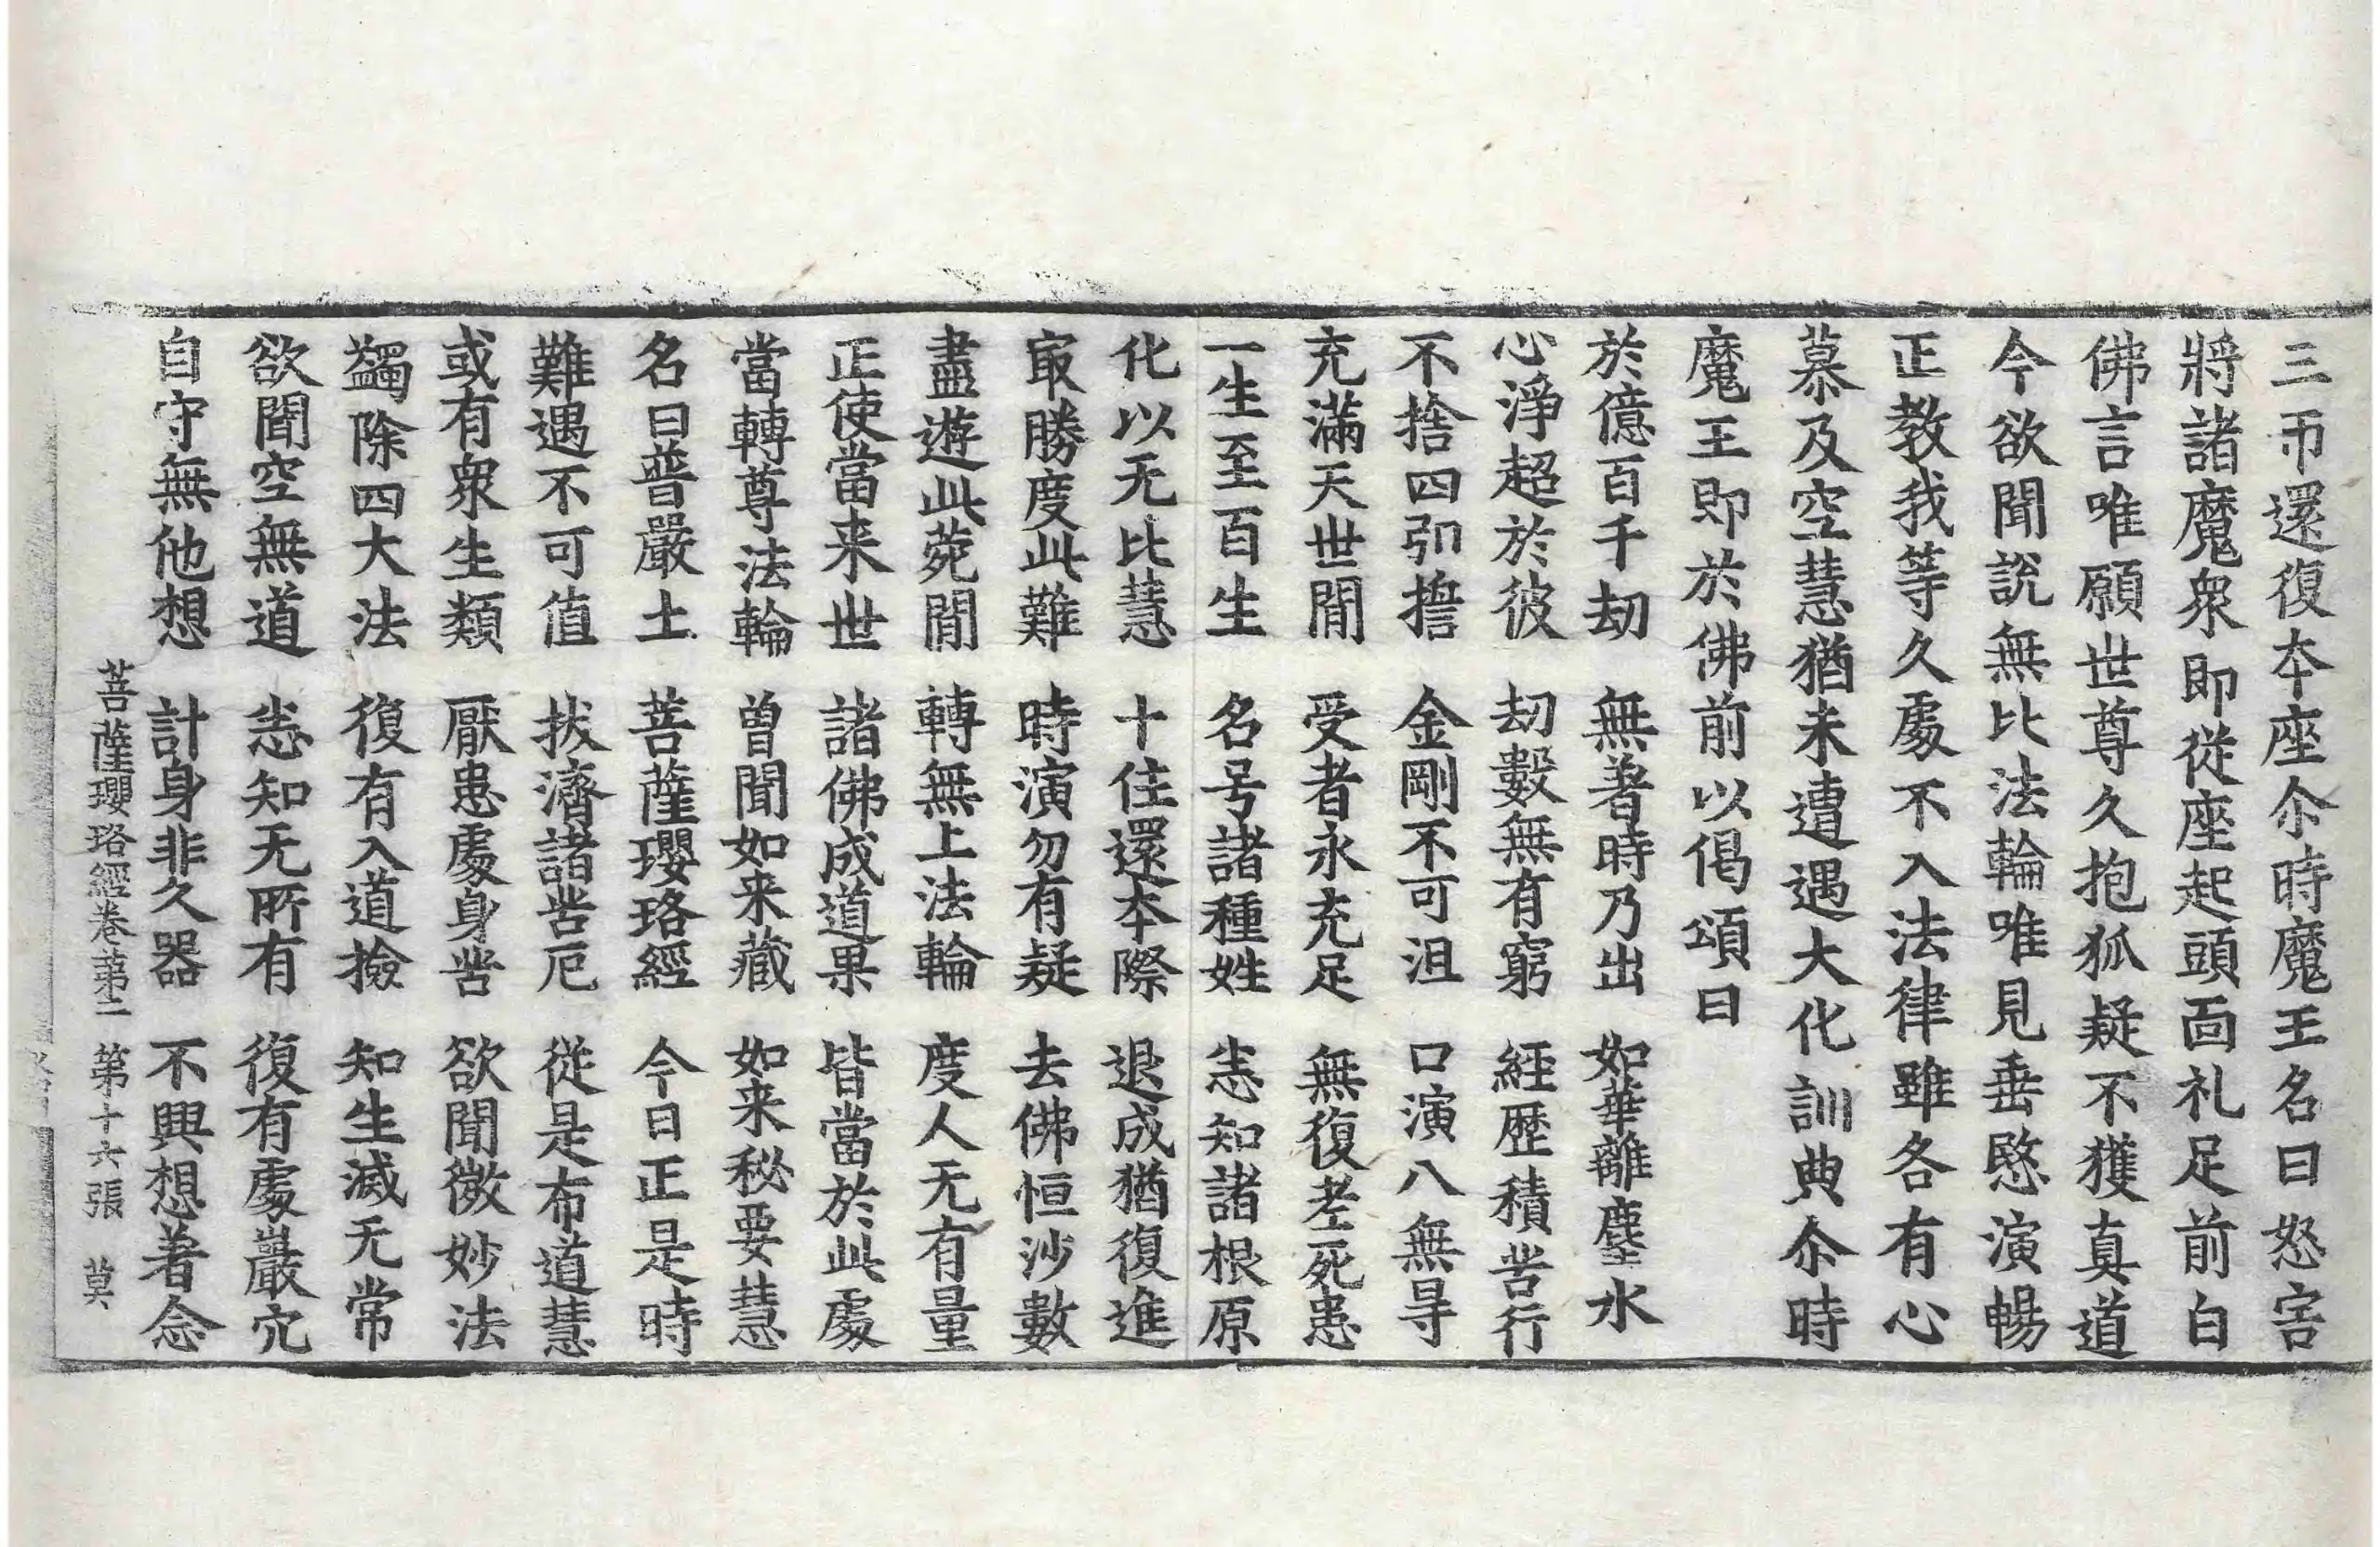 三帀還復夲座尒時魔王名曰怒害
將諸魔衆即從座起頭面礼足前白
佛言唯願世尊久抱狐疑不獲真道
今欲聞說無比法輪唯見垂愍演暢
正教我等久處不入法律雖各有心
慕及空慧猶未遭遇大化訓典尒時
魔王即於佛前以偈頌曰
於億百千劫 無著時乃出 如華離塵水
心淨超於彼 劫數無有窮 經歷積苦行
不捨四弘擔 金剛不可沮 口演八無㝵
充滿天世閒 受者永充足 無復老死患
一生至百生 名号諸種姓 悉知諸根原
化以无比慧 十住還夲際 退成猶復進
㝡勝度此難 時演勿有疑 去佛恒沙數
盡遊此菀閒 轉無上法輪 度人无有量
正使當来世 諸佛成道果 皆當於此處
當轉尊法輪 曽聞如来藏 如来秘要慧
名曰普嚴土 菩薩瓔珞經 今日正是時
難遇不可值 拔濟諸苦厄 從是布道慧
或有衆生類 厭患處身苦 欲聞微妙法
蠲除四大法 復有入道撿 知生滅无常
欲聞空無道 悉知无所有 復有處巖穴
自守無他想 計身非久器 不興想著念
菩薩瓔珞經卷第二 第十六張 莫